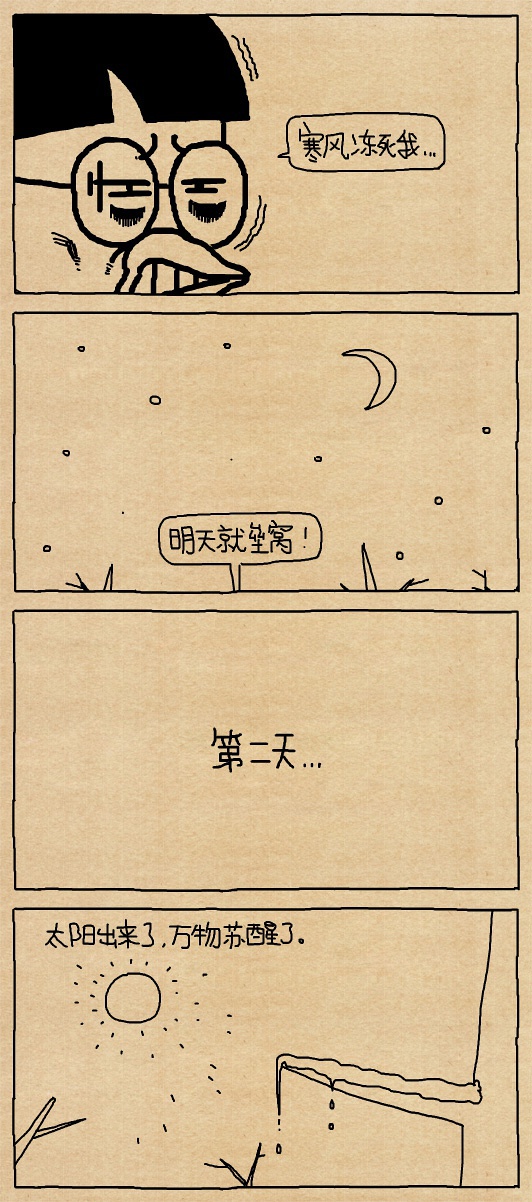 寒风冻死我...
明天就垒窝！
第二天...
太阳出来了，万物苏醒了。